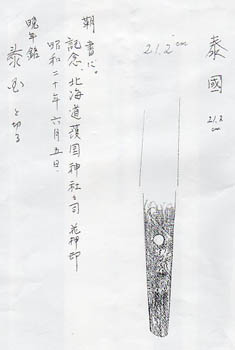 泰國
21.2 cm
21.2 cm
鞘書に。
記念 北海道護国神社々司 花押印
昭和二十年六月五日.
晩年銘
泰国 と切る